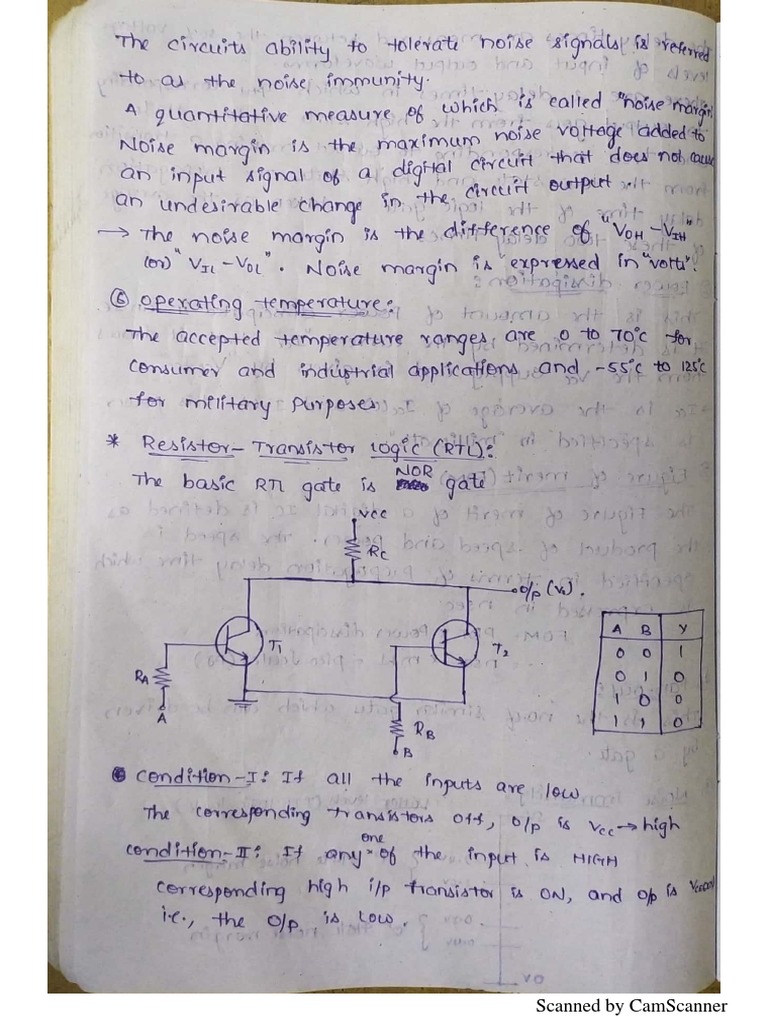 The circuits ability to tolerate noise signals is referred
to as the noise immunity.
A quantitative measure of which is called "noise margin
Noise margin is the maximum noise voltage added to
an input signal of a digital circuit that does not cause
an undesirable change in the circuit output.
→ The noise margin is the difference of "VOH - VIH"
(or) "VIL - VOL". Noise margin is "expressed in "volts".
⑥ operating temperature:
The accepted temperature ranges are 0 to 70°c for
consumer and industrial applications and -55°c to 125°c
for military purposes
* Resistor- Transistor logic (RTL):
The basic RTL gate is NOR gate
VCC
RC
o/p (Vo).
T1
T2
RA
A
RB
B
A B Y
0 0 1
0 1 0
1 0 0
1 1 0
condition-I: If all the inputs are low
The corresponding transistors off, o/p is VCC → high
condition-II: If any one of the input is HIGH
corresponding high i/p transistor is ON, and o/p is
i.e., the o/p is low.
Scanned by CamScanner